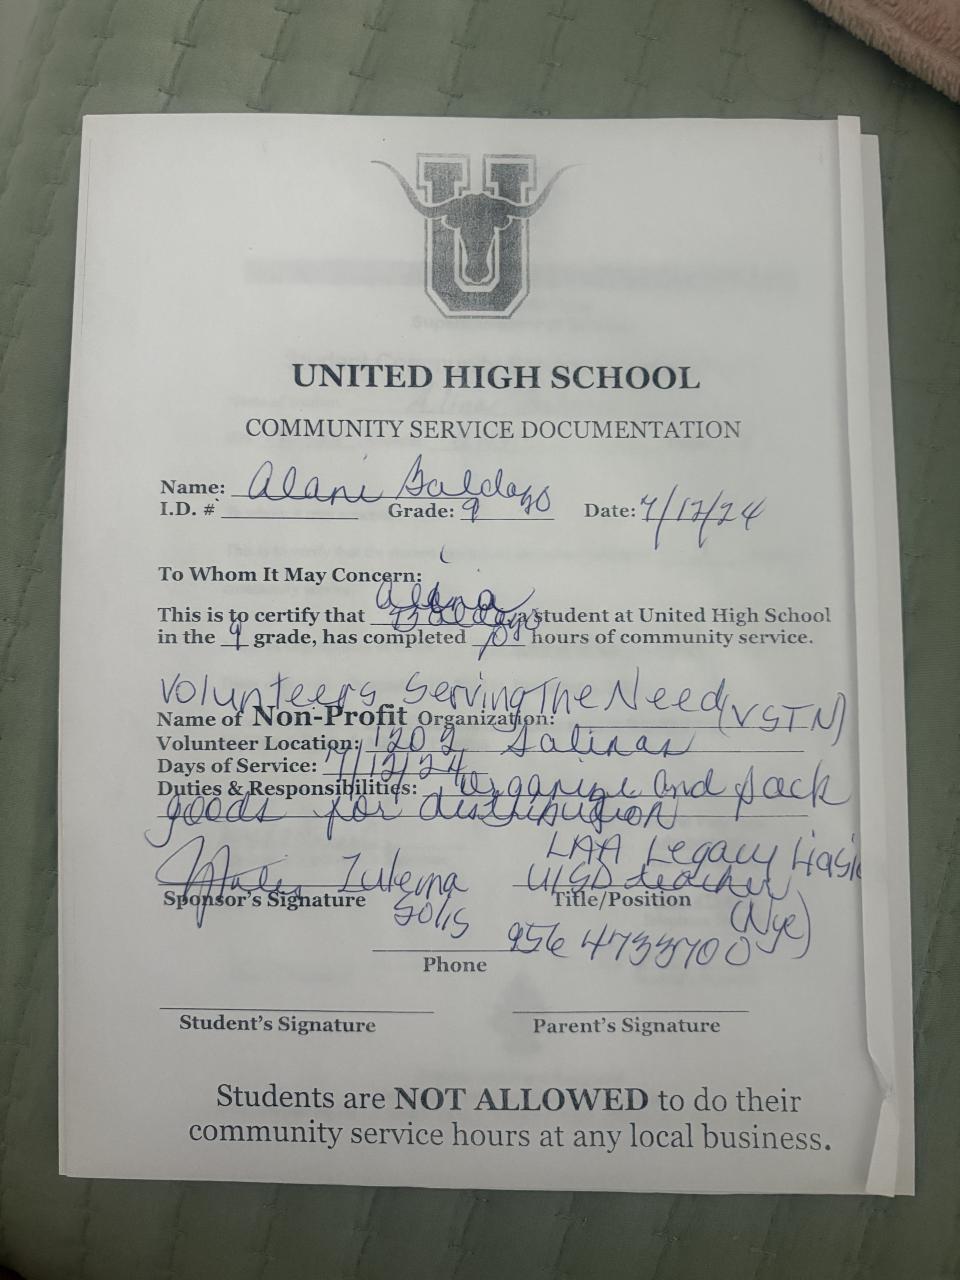 U
UNITED HIGH SCHOOL
COMMUNITY SERVICE DOCUMENTATION
Name: Alani Galdago
I.D. # Grade: 9 Date: 7/12/24
To Whom It May Concern:
This is to certify that a student at United High School
in the 9 grade, has completed hours of community service.
Volunteers Serving The Need (VSTN)
Name of Non-Profit Organization:
Volunteer Location: 1202 Salinas
Days of Service: 7/12/24
Duties & Responsibilities: Organize and Sack
goods for distribution
Zulema Solis
LAA Legacy
UISD teacher (Nye)
Sponsor's Signature Title/Position
956 4733700
Phone
Student's Signature Parent's Signature
Students are NOT ALLOWED to do their
community service hours at any local business.